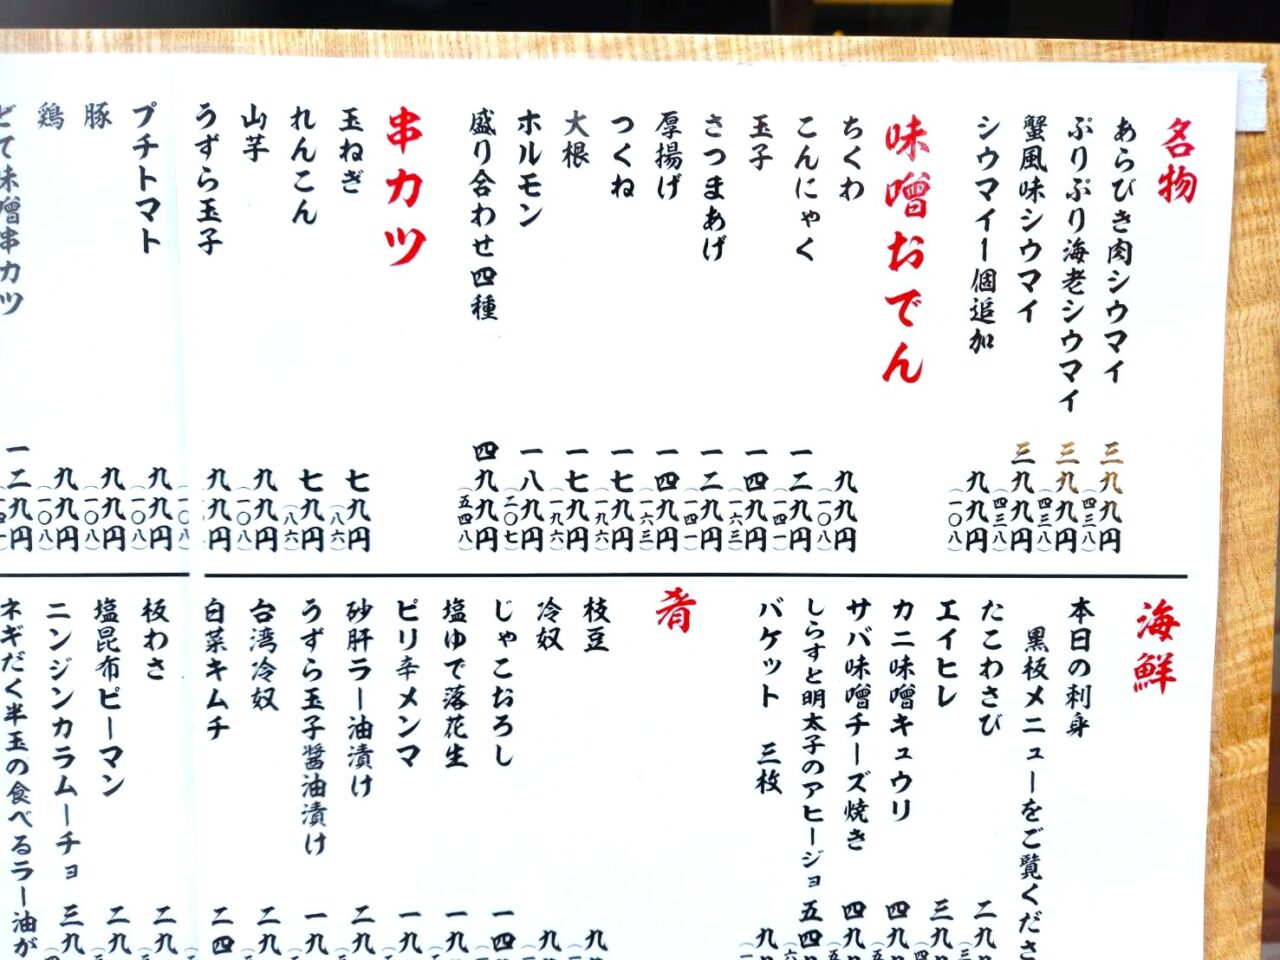 名物
あらびき肉シウマイ 三九九円(四三八)
ぷりぷり海老シウマイ 三九九円(四三八)
蟹風味シウマイ 三九九円(四三八)
シウマイ一個追加 九九円(一〇八)
味噌おでん
ちくわ 九九円(一〇八)
こんにゃく 一二九円(一四一)
玉子 一四九円(一六三)
さつまあげ 一二九円(一四一)
厚揚げ 一四九円(一六三)
つくね 一七九円(一九六)
大根 一七九円(一九六)
ホルモン 一八九円(二〇七)
盛り合わせ四種 四九九円(五四八)
串カツ
玉ねぎ 七九円(八六)
れんこん 七九円(八六)
山芋 九九円(一〇八)
うずら玉子 九九円(一〇八)
プチトマト 九九円(一〇八)
豚 九九円(一〇八)
鶏 九九円(一〇八)
どて味噌串カツ 一二九円(一四一)
海鮮
本日の刺身
黒板メニューをご覧くださ
たこわさび 二九
エイヒレ 三九
カニ味噌キュウリ 四九
サバ味噌チーズ焼き 四九
しらすと明太子のアヒージョ 五四
バケット 三枚 九
肴
枝豆 九
冷奴 九
じゃこおろし 一四
塩ゆで落花生 一九
ピリ辛メンマ 一九
砂肝ラー油漬け 二九
うずら玉子醤油漬け 一九
台湾冷奴 二九
白菜キムチ 二四
板わさ 二九
塩昆布ピーマン 二九
ニンジンカラムーチョ 三九
ネギだく半玉の食べるラー油が